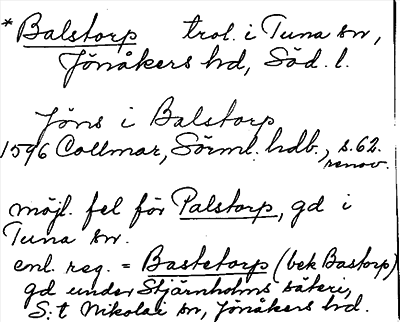 *Balstorp trol. i Tuna sn,
Jönåkers hd, Söd. l.
Jöns i Balstorp
1596 Collmar, Sörml. hdb., s. 62.
renov.
möjl. fel för Palstorp, gd i
Tuna sn.
enl. reg. = Bastetorp (bek Bastorp)
gd under Stjärnholms säteri,
S:t Nikolai sn, Jönåkers hd.